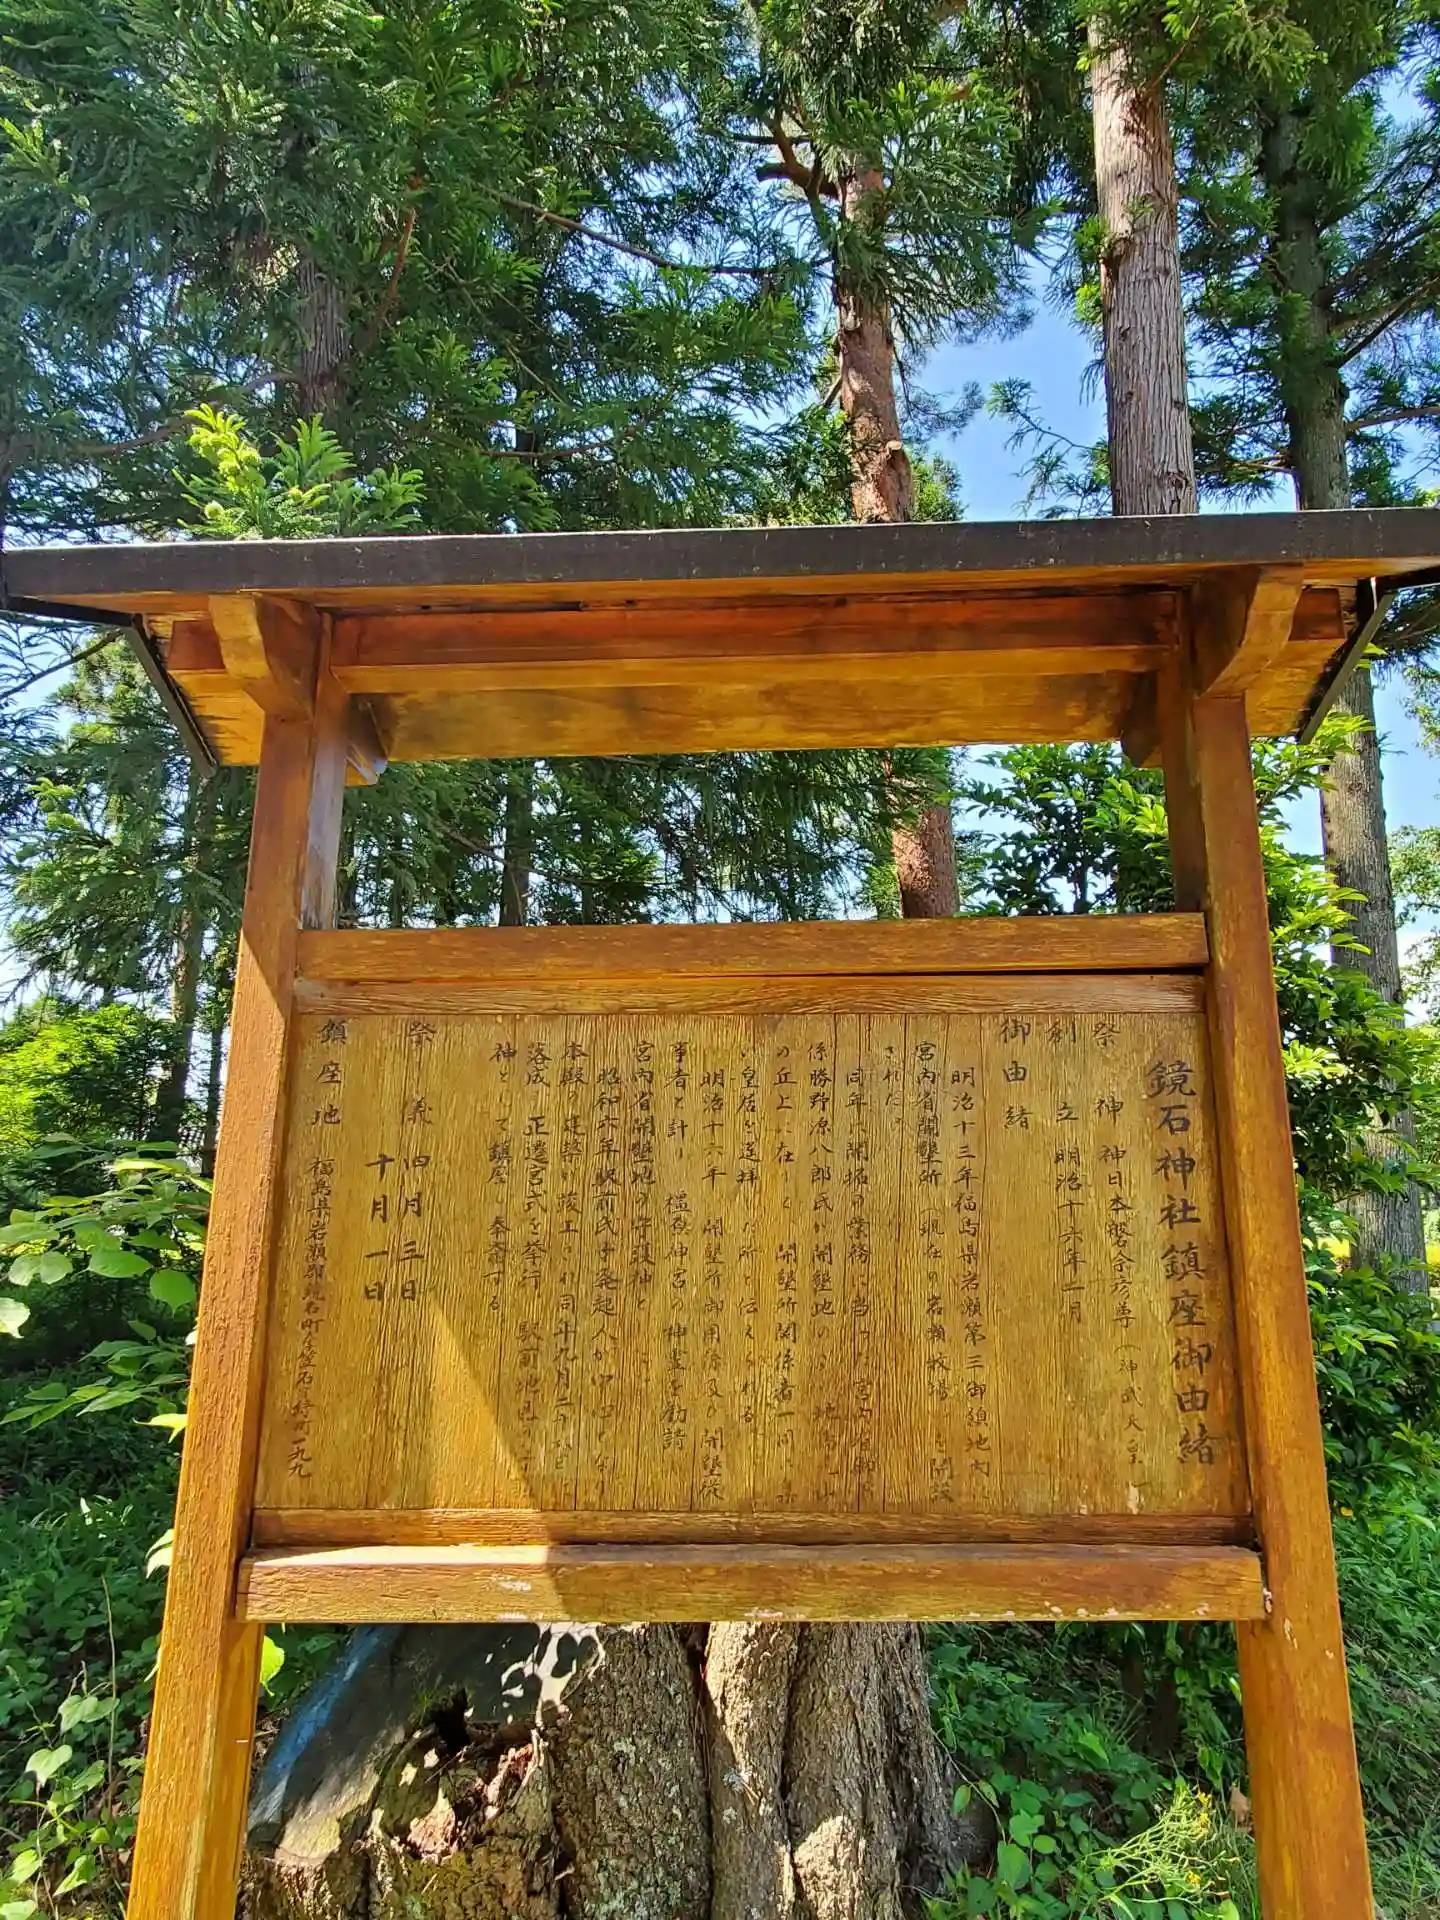 鏡石神社鎮座御由緒
祭神 神日本磐余彦尊（神武天皇）
創立 明治十六年二月
御由緒
明治十三年福島県岩瀬第三御領地内に
宮内省開墾所（現在の岩瀬牧場）を開設
された。
同年に開拓の業務に当った宮内省御
係勝野源八郎氏が開墾地の
の丘上に在り 開墾所関係者一同
い皇居を遥拝した所と伝えられる
明治十六年 開墾所御用係及び開墾従
事者と計り 橿原神宮の神霊を勧請
宮内省開墾地の守護神とした。
昭和六年駅前氏子発起人が中心となり
本殿の建築が竣工され同年九月
落成 正遷宮式を挙行 駅前地区の
神として鎮座し奉斎する
祭儀 四月三日
十月一日
鎮座地 福島県岩瀬郡鏡石町 一九九